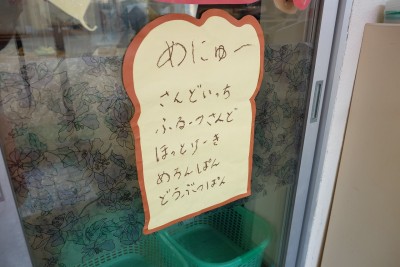 めにゅー
さんどいっち
ふるーつさんど
ほっとけーき
めろんぱん
どうぶつぱん